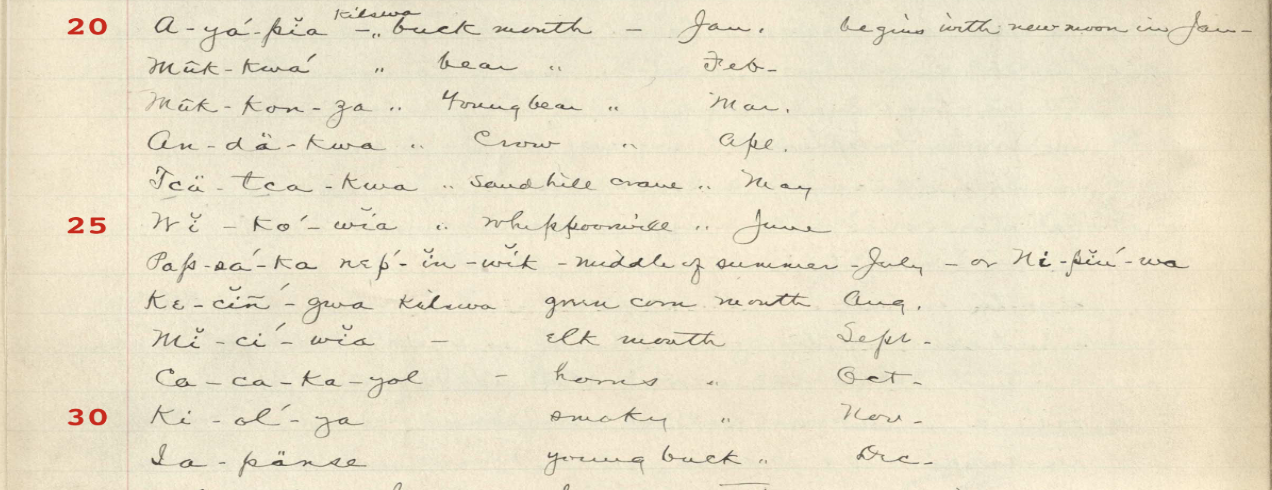 20 A-yá-pĭa Kilswa -„ buck month - Jan. begins with new moon in Jan-
Mŭk-kwá „ bear „ Feb-
Mŭk-kon-za „ Young bear „ Mar.
An-dä-kwa „ Crow „ Apl.
Tcä-tca-kwa „ Sandhill crane „ May
25 Wĭ-kó-wĭa „ Whippoorwill „ June
Pap-sá-ka nɛṕ-ĭn-wĭk - middle of summer - July - or Ni-pĭń-wa
Kɛ-cĭñ́-gwa Kilswa green corn month Aug.
Mĭ-cí-wĭa - elk month Sept-
Ca-ca-ka-yol - horns „ Oct-
30 Ki-oĺ-ya smoky „ Nov-
Ia-pänse young buck „ Dec-